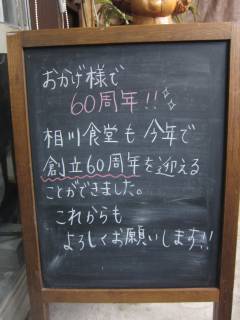 おかげ様で
60周年!!
相川食堂も今年で
創立60周年を迎える
ことができました。
これからも
よろしくお願いします!!